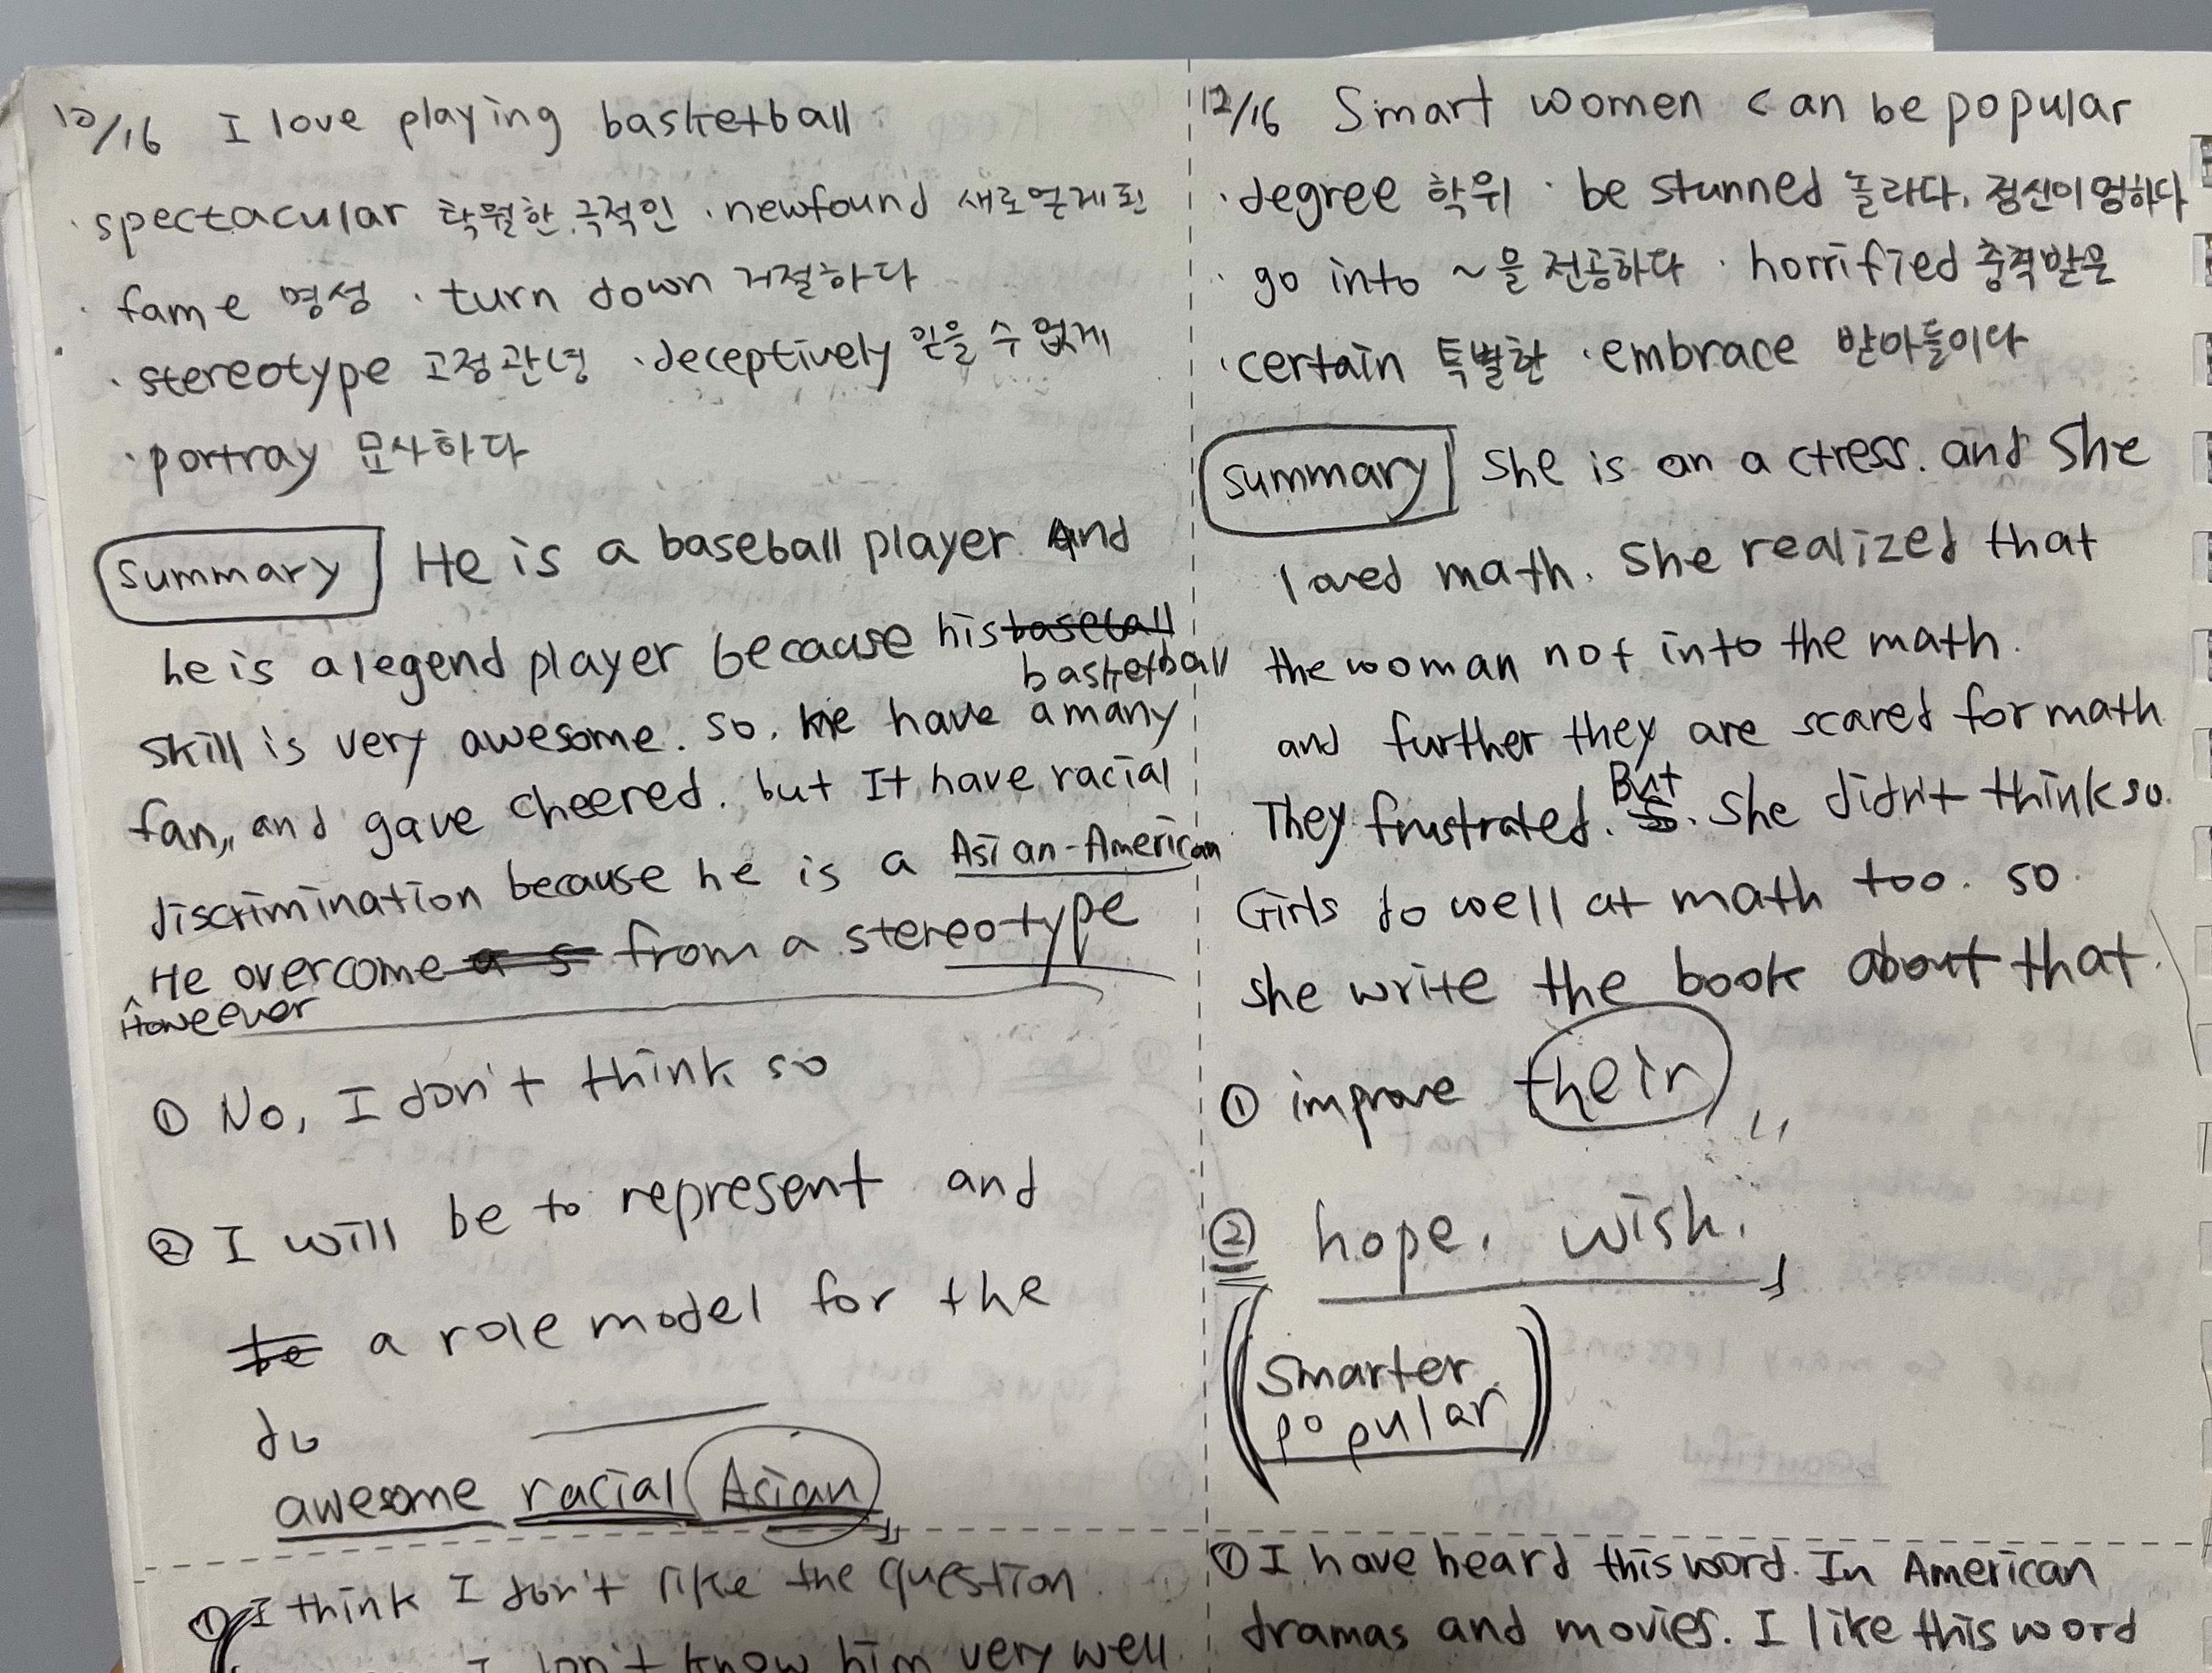 12/16 I love playing basketball
· spectacular 탁월한, 극적인 · newfound 새로 얻게 된
· fame 명성 · turn down 거절하다
· stereotype 고정관념 · deceptively 믿을 수 없게
· portray 묘사하다
summary He is a baseball player And
he is a legend player because his baseball
basketball
skill is very awesome. so. he have a many
fan,, and gave cheered. but It have racial
discrimination because he is a Asian-American
He overcome a s from a stereotype
Howeever
① No, I don't think so
② I will be to represent and
be a role model for the
do
awesome racial Asian
① I think I don't like the question.
I don't know him very well.
12/16 Smart women can be popular
· degree 학위 · be stunned 놀라다, 정신이 멍하다
· go into ~을 전공하다 · horrified 충격받은
· certain 특별한 · embrace 받아들이다
summary She is an actress. and She
loved math. She realized that
the woman not into the math.
and further they are scared for math
They frustrated. But So. She didn't think so.
Girls do well at math too. so.
she write the book about that.
① improve their
② hope. wish.
Smarter
popular
① I have heard this word. In American
dramas and movies. I like this word